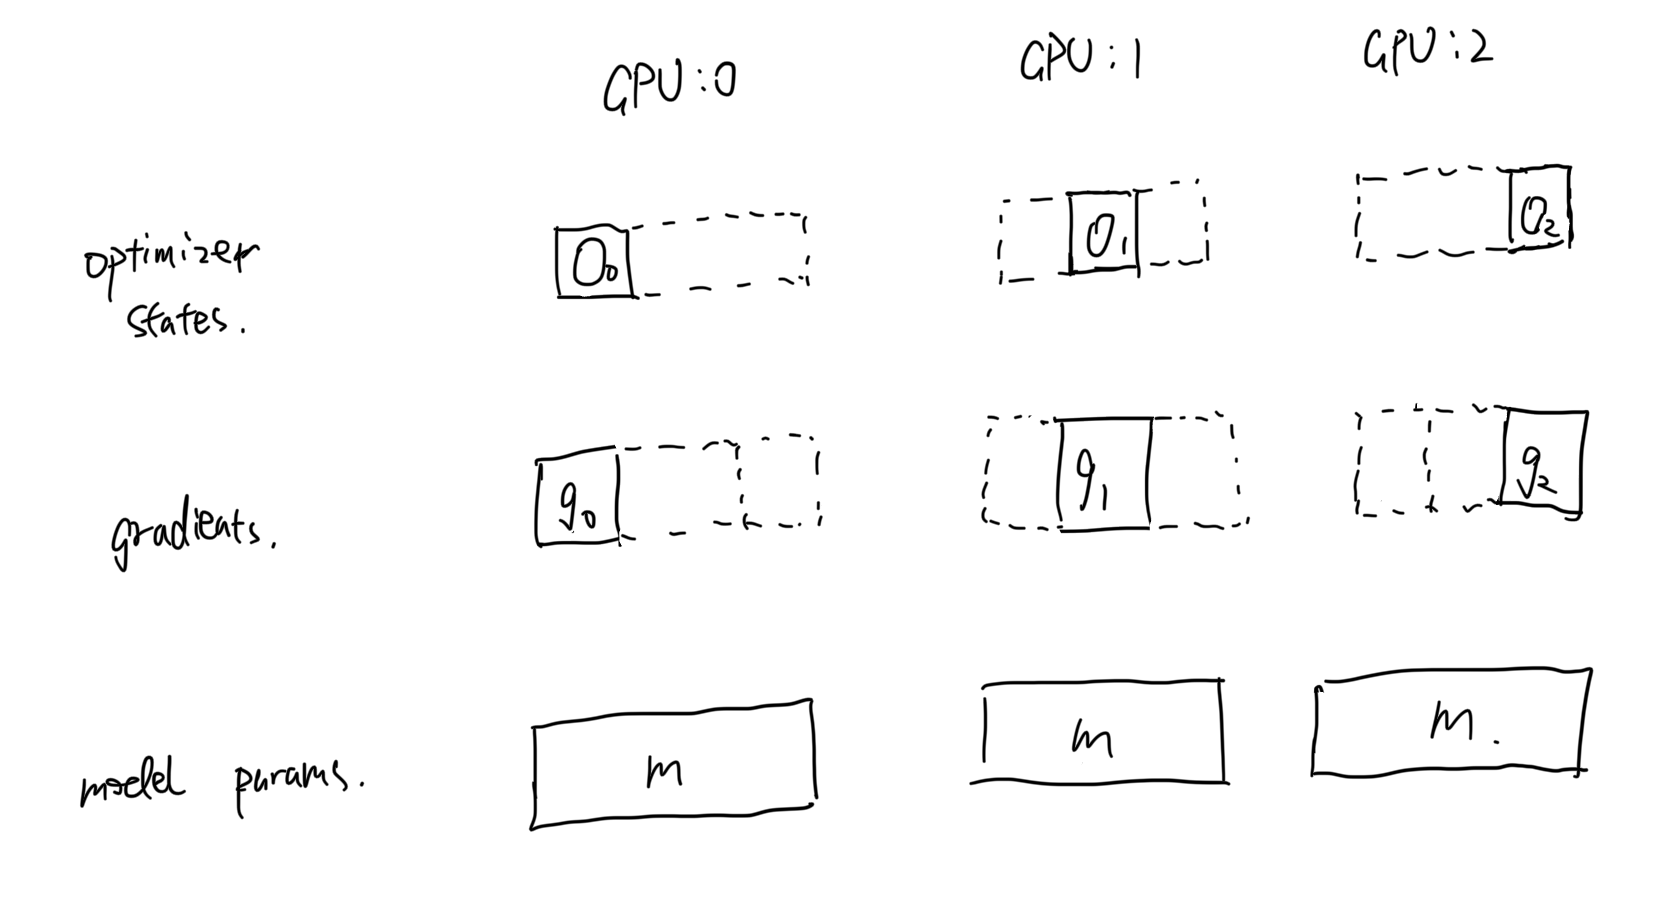 GPU:0 GPU:1 GPU:2
optimizer
states.
O₀ O₁ O₂
gradients.
g₀ g₁ g₂
model params.
m m m.